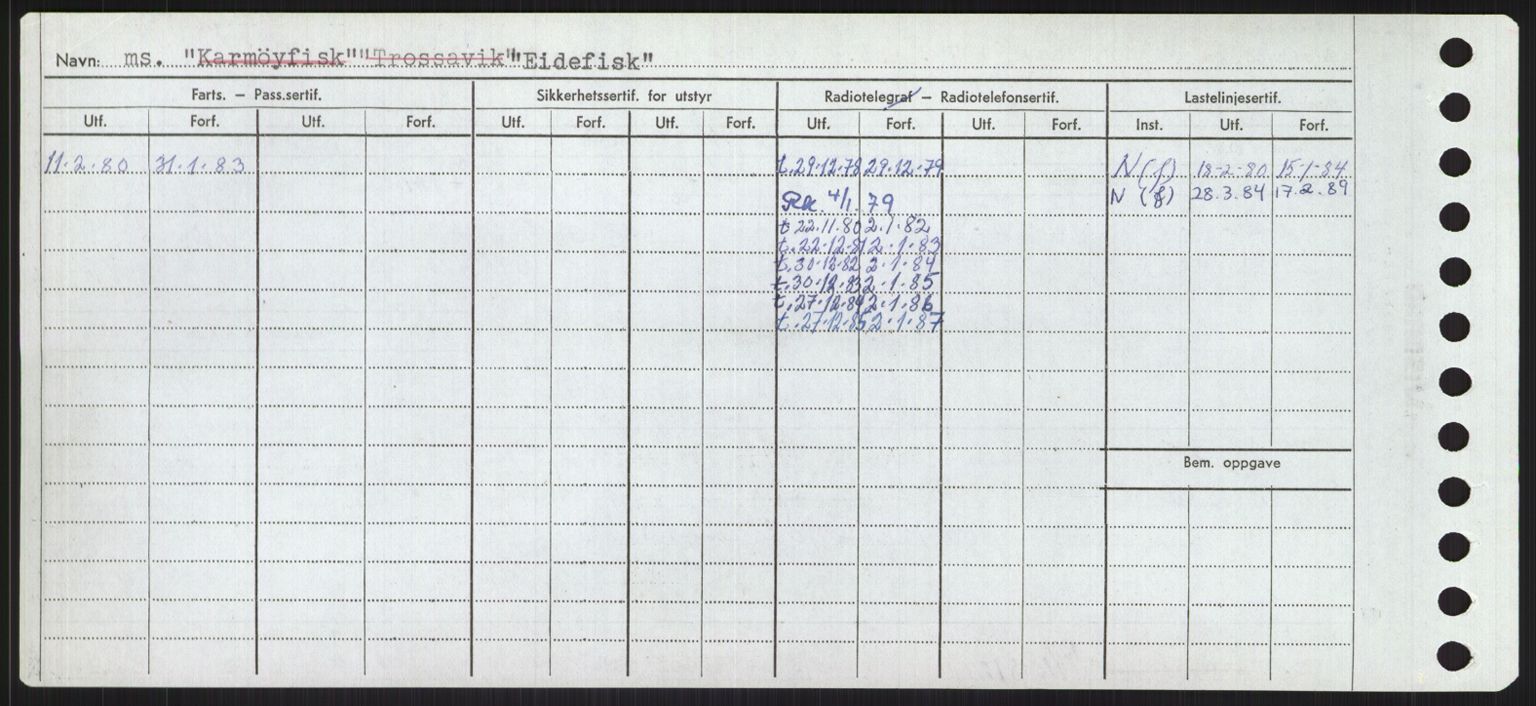 Navn: ms. "Karmöyfisk" "Trossavik" "Eidefisk"
Farts. — Pass.sertif. Sikkerhetssertif. for utstyr Radiotelegraf — Radiotelefonsertif. Lastelinjesertif.
Utf. Forf. Utf. Forf. Utf. Forf. Utf. Forf. Utf. Forf. Utf. Forf. Inst. Utf. Forf.
11.2.80 31.1.83 t.29.12.78 29.12.79 N(f) 18-2-80 15-1-84
4/1.79 N (f) 28.3.84 17.2.89
t 22.11.80 2.1.82
t.22.12.81 2.1.83
t.30.12.82 2.1.84
t.30.12.83 2.1.85
t.27.12.84 2.1.86
t.27.12.85 2.1.87
Bem. oppgave